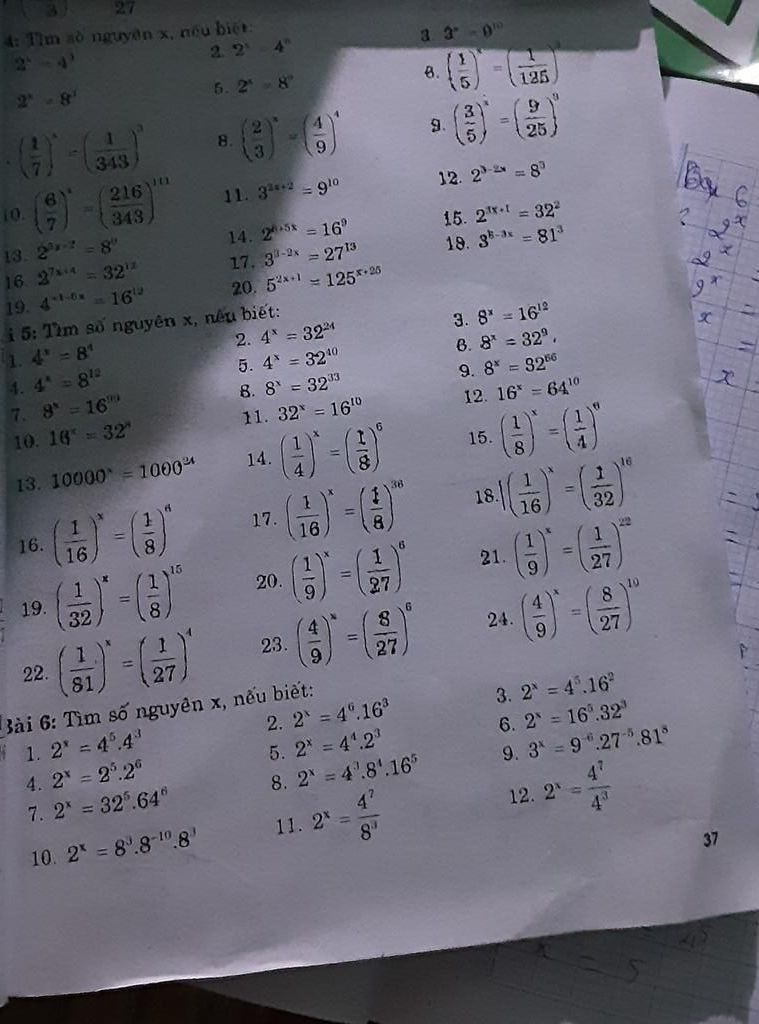 27
4: Tìm số nguyên x, nếu biết:
2. 2ˣ = 4⁶
3. 3ˣ = 9¹⁰
2ˣ = 4³
5. 2ˣ = 8⁹
6. (1/5)ˣ = (1/125)
2ˣ = 8
(1/7)ˣ = (1/343)³
8. (2/3)ˣ = (4/9)⁴
9. (3/5)ˣ = (9/25)⁹
10. (6/7)ˣ = (216/343)¹¹¹
11. 3²ˣ⁺² = 9¹⁰
12. 2³⁻²ˣ = 8³
13. 2⁵ˣ⁻² = 8⁹
14. 2⁶⁺⁵ˣ = 16⁹
15. 2³ˣ⁺¹ = 32²
16. 2⁷ˣ⁺⁴ = 32¹²
17. 3³⁻²ˣ = 27¹³
18. 3⁶⁻³ˣ = 81³
19. 4⁻¹⁻⁶ˣ = 16¹²
20. 5²ˣ⁺¹ = 125ˣ⁺²⁵
i 5: Tìm số nguyên x, nếu biết:
1. 4ˣ = 8⁴
2. 4ˣ = 32²⁴
3. 8ˣ = 16¹²
4. 4ˣ = 8¹²
5. 4ˣ = 32⁴⁰
6. 8ˣ = 32⁹.
7. 8ˣ = 16⁹⁹
8. 8ˣ = 32³³
9. 8ˣ = 32⁶⁶
10. 16ˣ = 32⁸
11. 32ˣ = 16¹⁰
12. 16ˣ = 64¹⁰
13. 10000ˣ = 1000²⁴
14. (1/4)ˣ = (1/8)⁶
15. (1/8)ˣ = (1/4)⁶
16. (1/16)ˣ = (1/8)⁶
17. (1/16)ˣ = (1/8)³⁶
18. (1/16)ˣ = (1/32)¹⁶
19. (1/32)ˣ = (1/8)¹⁵
20. (1/9)ˣ = (1/27)⁶
21. (1/9)ˣ = (1/27)²²
22. (1/81)ˣ = (1/27)⁴
23. (4/9)ˣ = (8/27)⁶
24. (4/9)ˣ = (8/27)¹⁰
Bài 6: Tìm số nguyên x, nếu biết:
1. 2ˣ = 4⁵.4³
2. 2ˣ = 4⁶.16³
3. 2ˣ = 4⁵.16²
4. 2ˣ = 2⁵.2⁶
5. 2ˣ = 4⁴.2³
6. 2ˣ = 16⁵.32³
7. 2ˣ = 32⁵.64⁶
8. 2ˣ = 4³.8⁴.16⁵
9. 3ˣ = 9⁻⁶.27⁻⁵.81⁸
10. 2ˣ = 8³.8⁻¹⁰.8³
11. 2ˣ = 4⁷/8³
12. 2ˣ = 4⁷/4³
37
6
2ˣ
2ˣ
9ˣ
x
x
x = 5